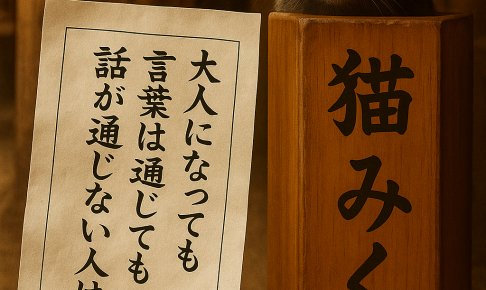 大人になっても
言葉は通じても
話が通じない人は
猫みく